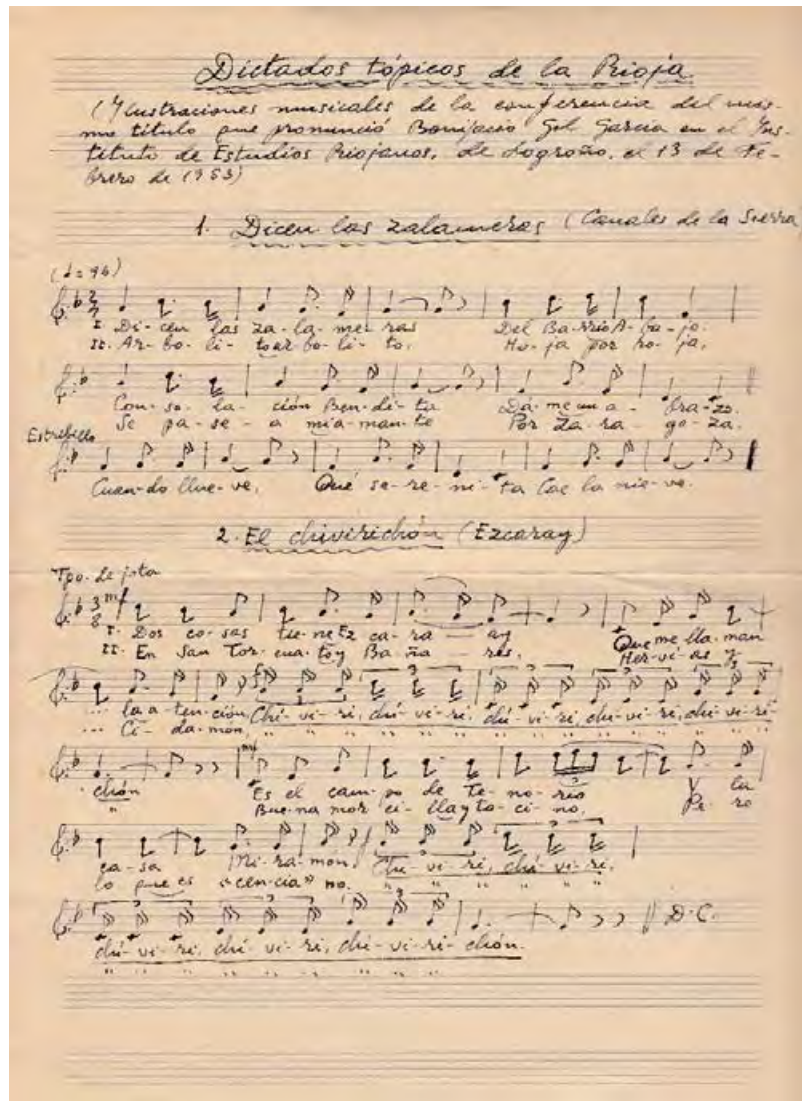 Dictados tópicos de la Rioja
(Ilustraciones musicales de la conferencia del mis-
mo título que pronunció Bonifacio Gil García en el Ins-
tituto de Estudios Riojanos, de Logroño, el 13 de Fe-
brero de 1953)
1. Dicen las zalameras (Canales de la Sierra)
(♩= 96)
I. Di-cen las za-la-me-ras Del Ba-rrio A-ba-jo.
II. Ar-bo-li-to ar-bo-li-to, Ho-ja por ho-ja,
Con-so-la-ción Ben-di-ta Dá-me un a-bra-zo.
Se pa-se-a mi a-man-te Por Za-ra-go-za.
Estribillo
Cuan-do llue-ve, Qué se-re-ni-ta Cae la nie-ve.
2. El chivirichón (Ezcaray)
Tpo. de jota
3 8 mf
I. Dos co-sas tie-ne Ez-ca-ra-ay Que me lla-man
II. En San Tor-cua-to y Ba-ña-res, Her-ví-as y
... la a-ten-ción, Chi-vi-ri, chi-vi-ri, chi-vi-ri, chi-vi-ri, chi-vi-ri-
... Ci-da-món, " " " " " " " " " " " "
chón Es el cam-po de te-no-rio Y la
" Bue-na mor-ci-lla y to-ci-no, Pe-ro
ca-sa Mi-ra-món. Chi-vi-ri, chi-vi-ri,
lo que es «cen-cia» no. " " " " " "
D.C.
chi-vi-ri, chi-vi-ri, chi-vi-ri-chón.
" " " " " " " "